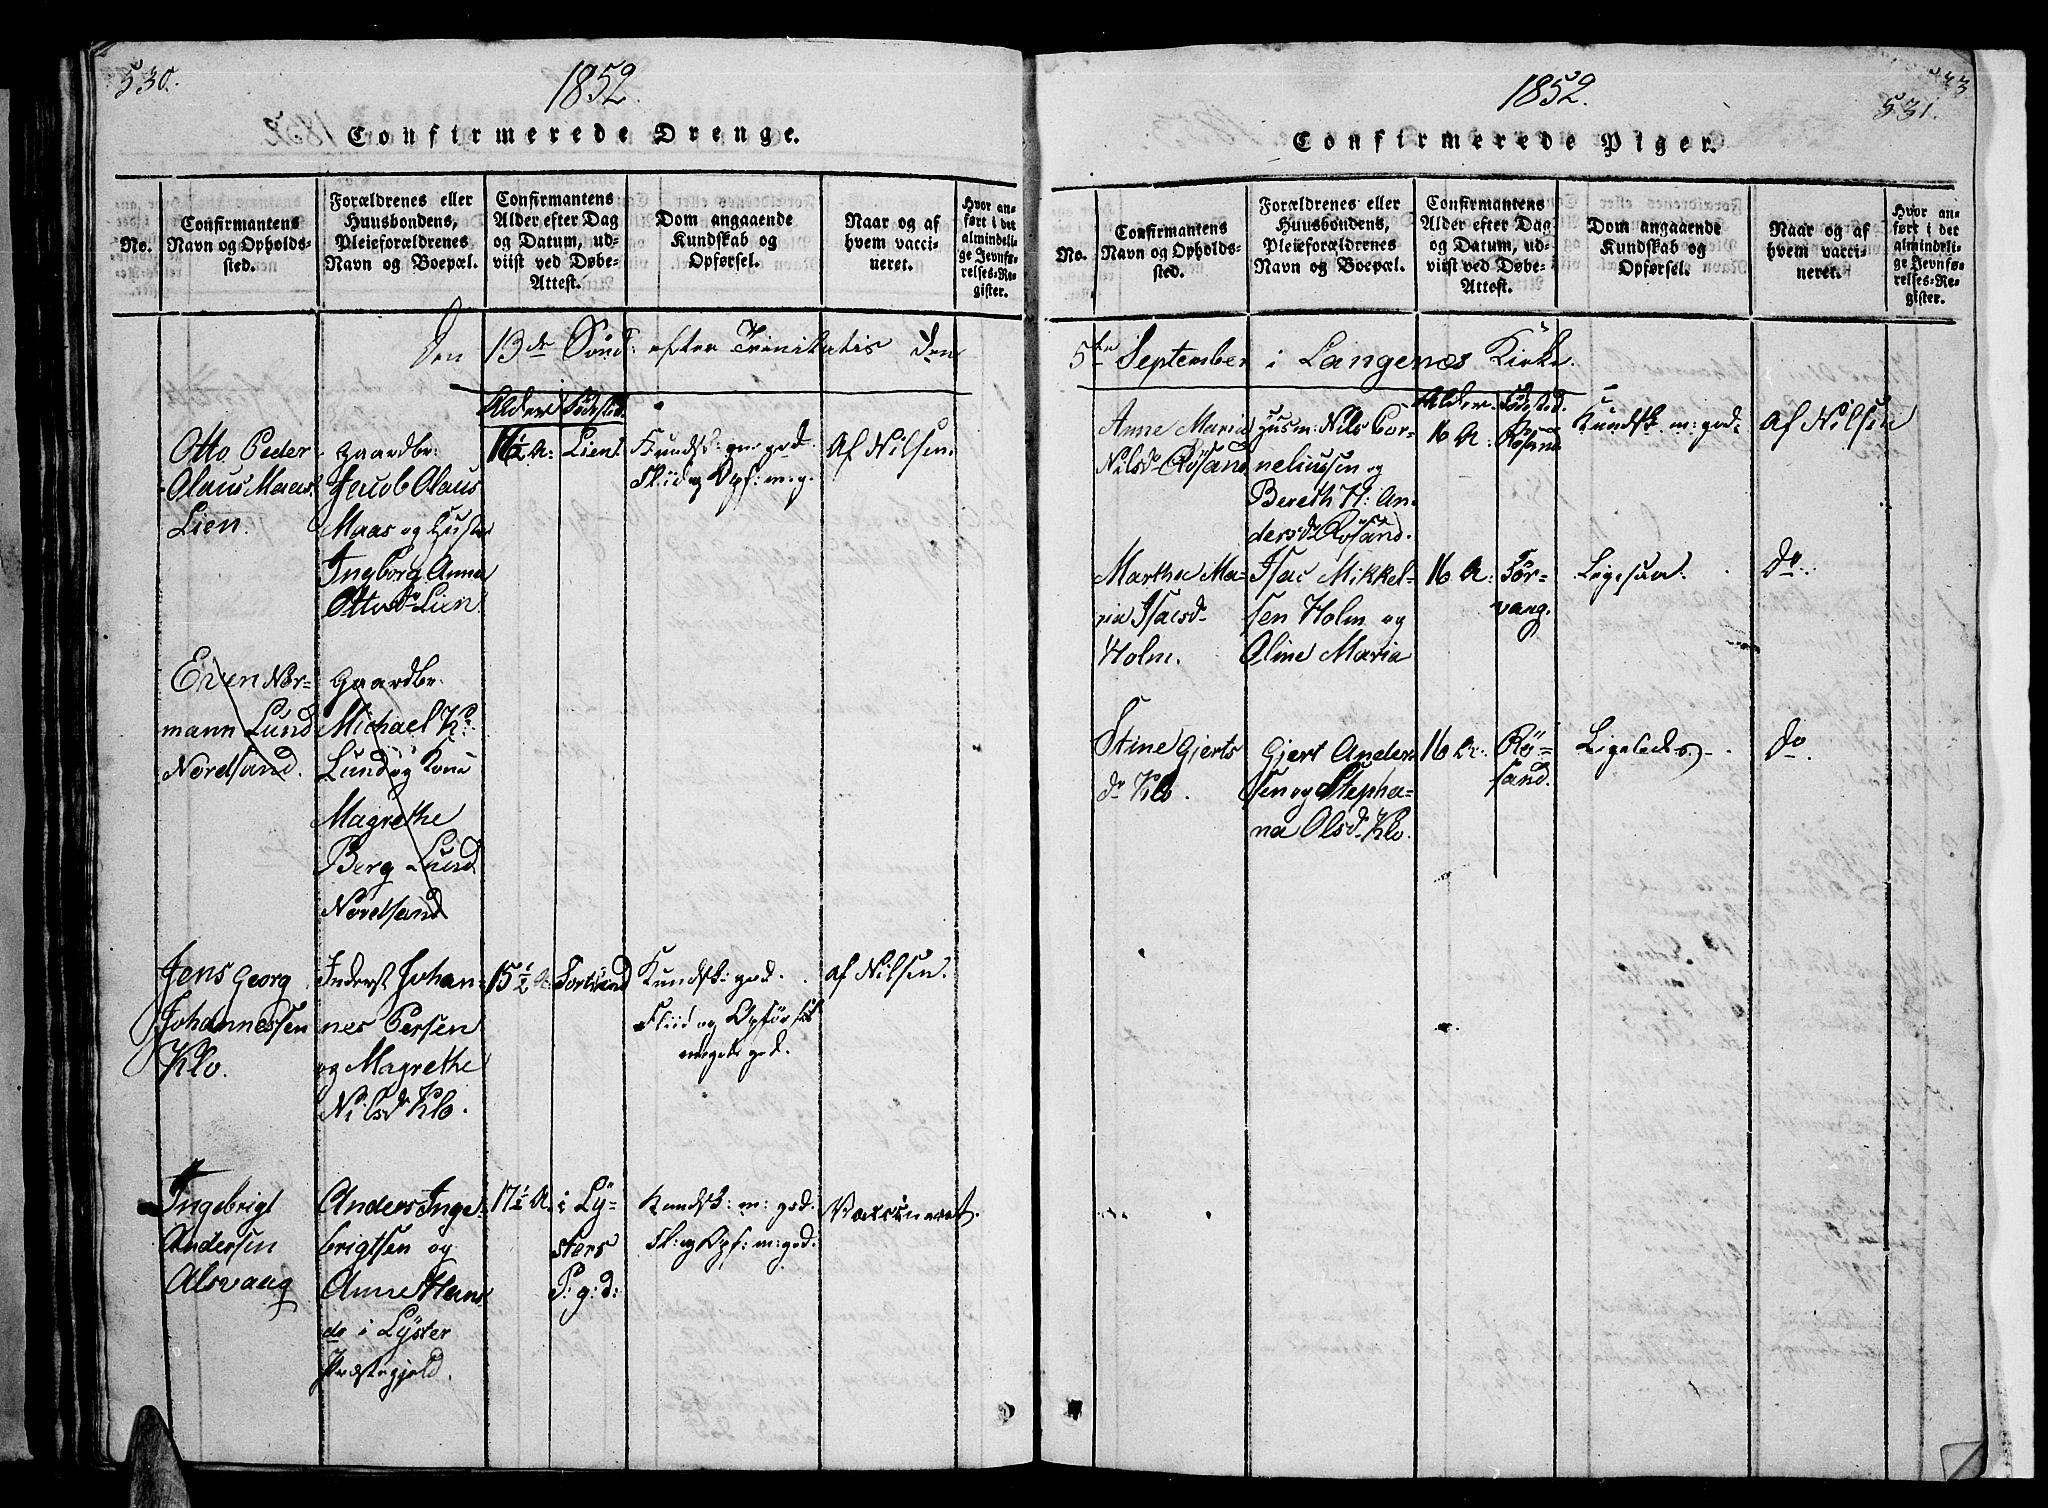 530.
1852.
Confirmerede Drenge.
No.
Confirmantens
Navn og Opholds-
sted.
Forældrenes eller
Huusbondens,
Pleieforældrenes
Navn og Boepæl.
Confirmantens
Alder efter Dag
og Datum, ud-
viist ved Døbe-
Attest.
Dom angaaende
Kundskab og
Opførsel.
Naar og af
hvem vacci-
neret.
Hvor an-
ført i det
almindeli-
ge Jevnfø-
relses-Re-
gister.
Den 13de Sönd: efter Trinitatis den
Alder Födested.
Otto Peder
Olaus Maas
Lien.
Gaardbr:
Jacob Olaus
Maas og Hustr
Ingborg Anna
Ottosdr Lien.
16½ A:
Lien
Kundsk: m: god.
Fliid og Opf: m: g.
Af Nilsen.
Even Nor-
mann Lund
Nordsand.
Gaardbr.
Michael K:
Lund og Kone
Magrethe
Berg Lund
Nordsand
Jens Georg
Johannessen
Klo.
Inderst Johan-
nes Persen
og Magrethe
Nilsdr Klo.
15½ A:
Sortland
Kundsk: god.
Fliid og Opförsel
meget god.
Af Nilsen.
Ingebrigt
Andersen
Alsvaag
Anders Inge-
brigtsen og
Anne Hans
dr i Lyster
Præstegjeld.
17½ A.
i Ly-
sters
P: g: d:
Kundsk: m: god.
Fl: og Opf: m: god.
Vaccineret.
1852.
33
531.
Confirmerede Piger.
No.
Confirmantens
Navn og Opholds-
sted.
Forældrenes eller
Huusbondens,
Pleieforældrenes
Navn og Boepæl.
Confirmantens
Alder efter Dag
og Datum, ud-
viist ved Døbe-
Attest.
Dom angaaende
Kundskab og
Opførsel.
Naar og af
hvem vacci-
neret.
Hvor an-
ført i det
almindeli-
ge Jevnfø-
relses-Re-
gister.
5te September i Langenæs Kirke.
Alder. Födested.
Anne Maria
Nilsdr Rösand
Husm: Nils Cor-
neliussen og
Bereth H: An-
dersdr Rösand.
16 A:
Rösand
Kundsk. m: god:
Af Nilsen
Martha Ma-
ria Isacsdr
Holm.
Isac Mikkel-
sen Holm og
Oline Maria
16 A:
För-
vaag.
Ligesaa.
Do.
Stine Gjerts
dr Klo.
Gjert Ander-
sen og Stepha-
na Olsdr Klo.
16 A:
Rö-
sand.
Ligeledes
Do.